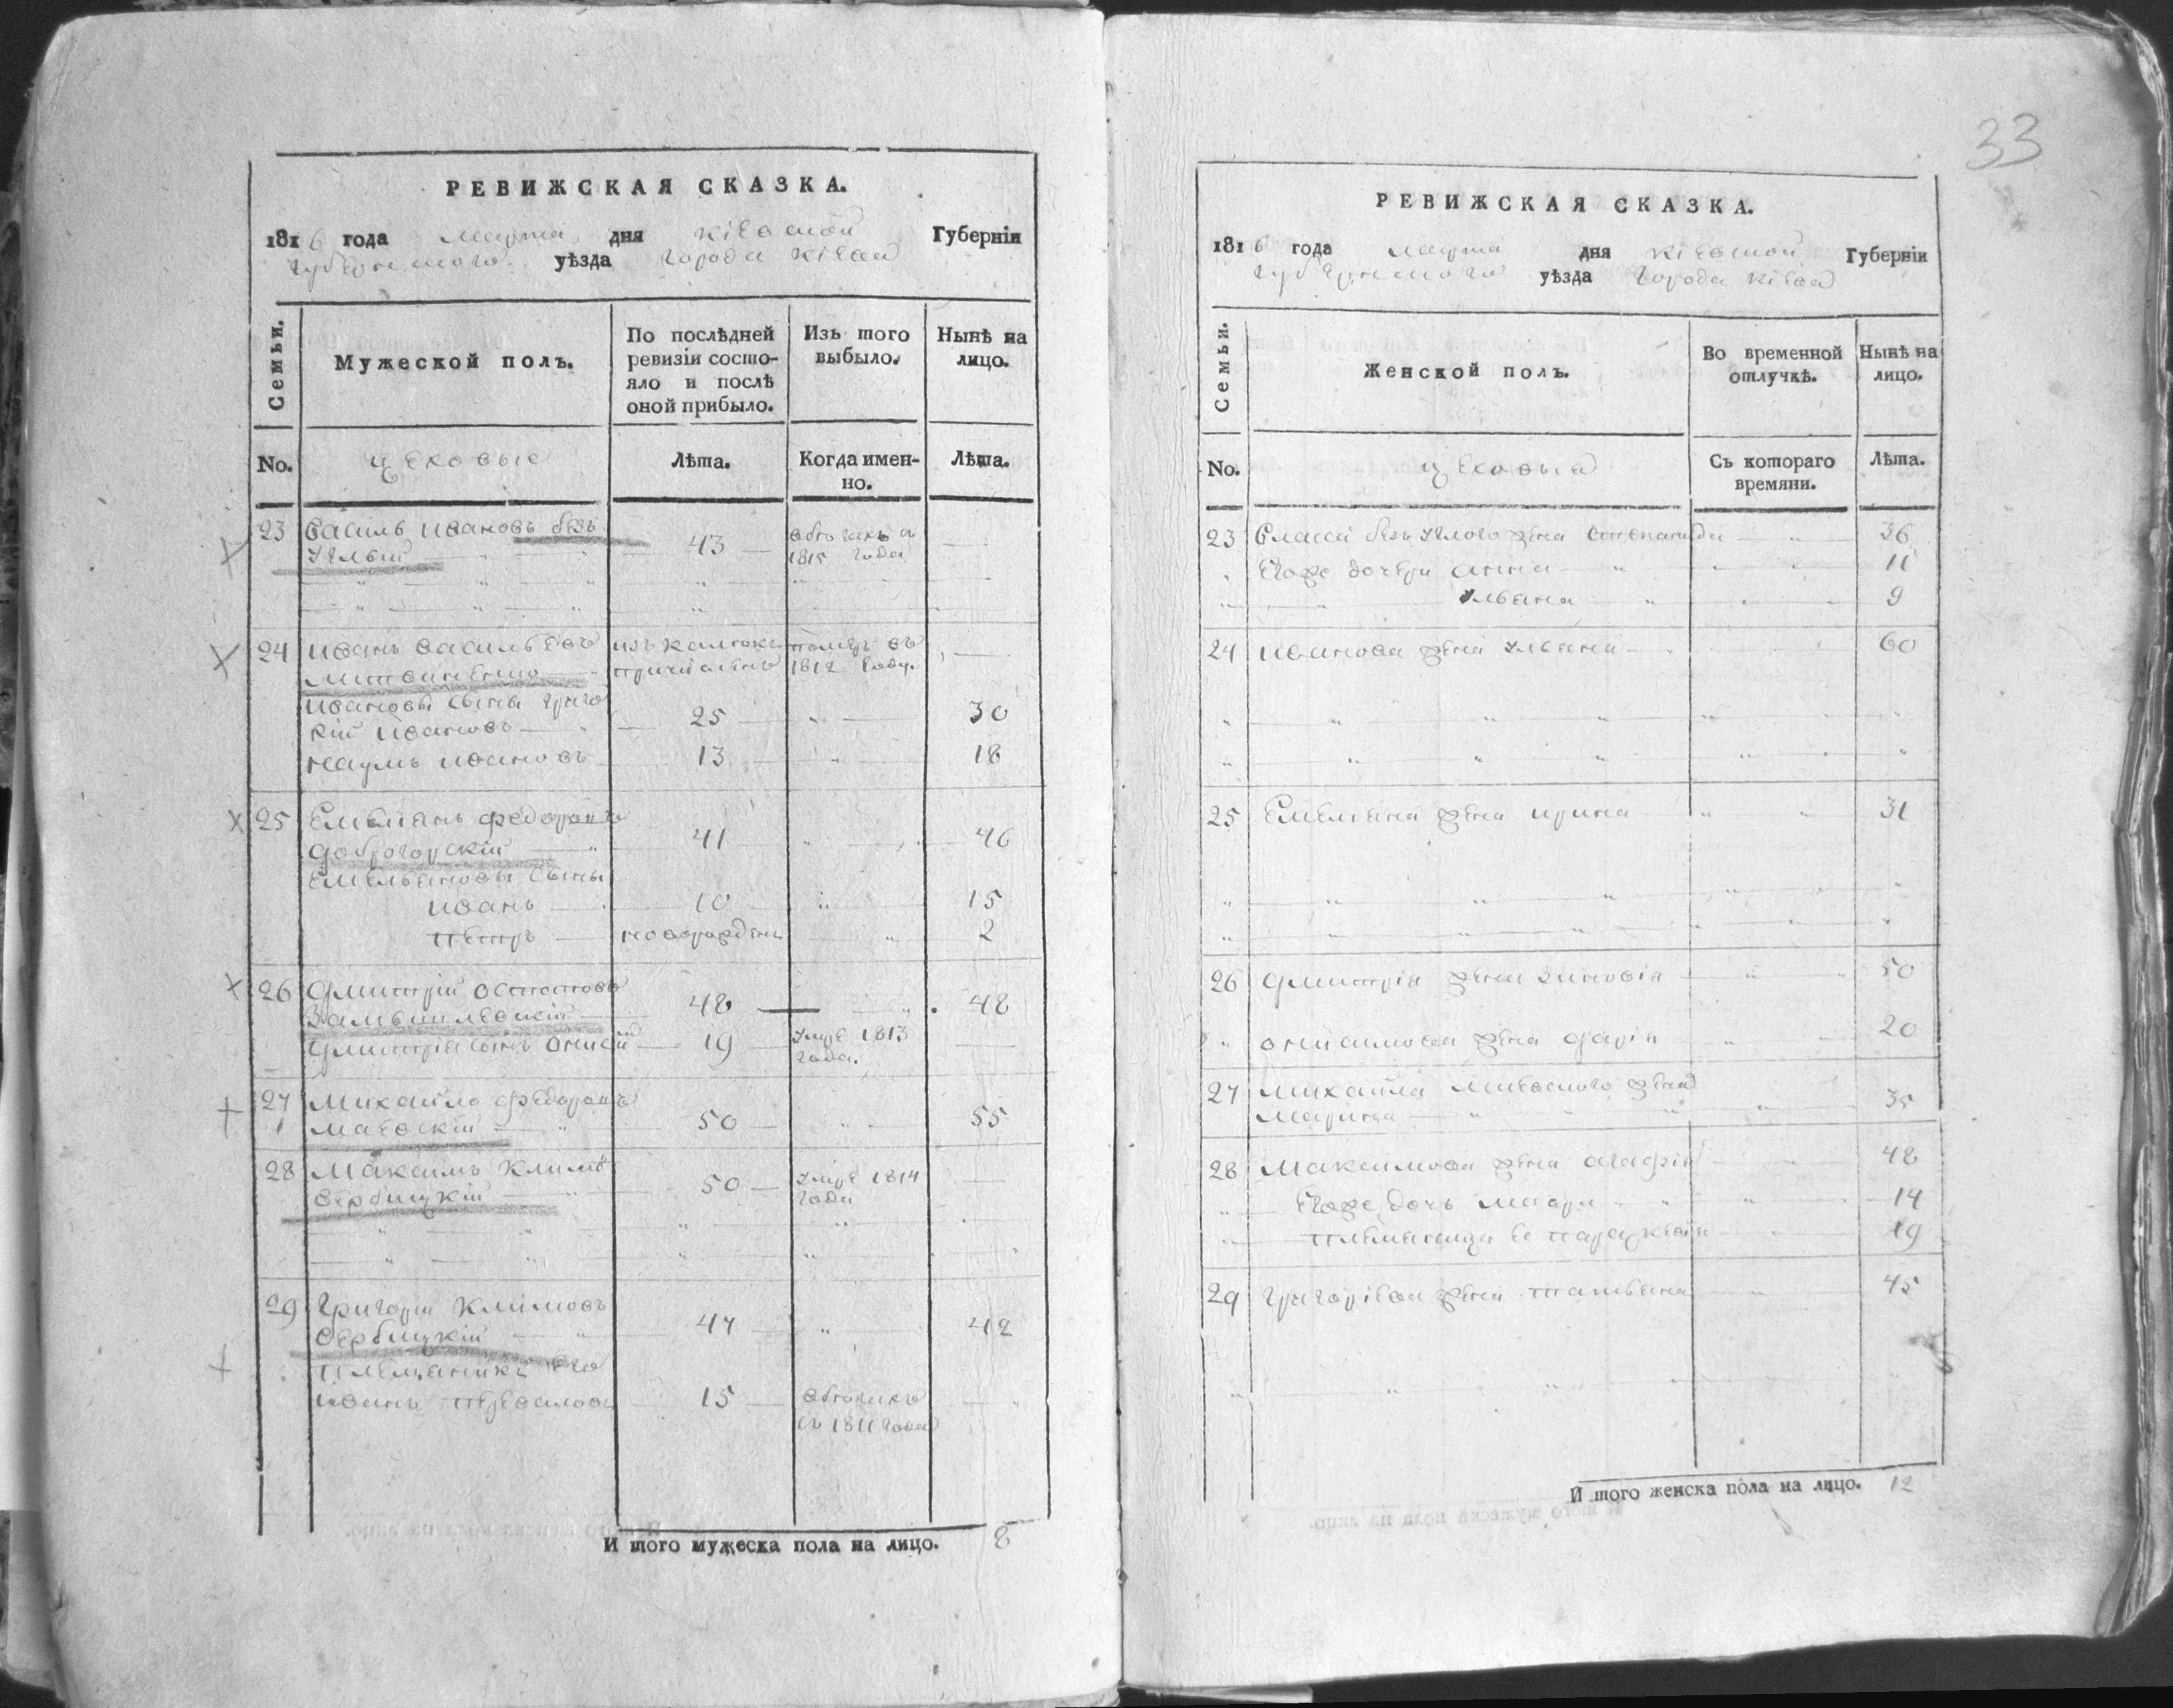 33
РЕВИЖСКАЯ СКАЗКА.
1816 года марта дня Кіевской Губерніи
Губернского уѣзда города Кіева
Семьи.
Мужеской полъ.
По послѣдней
ревизіи состо-
яло и послѣ
оной прибыло.
Изъ того
выбыло.
Нынѣ на
лицо.
No.
цеховые
Лѣта.
Когда имен-
но.
Лѣта.
23 Василь Ивановъ безъ
43
1815 года
24 Иванъ Васильевъ
1812 году
Ивановы сыны Григо
рій Ивановъ 25 30
Наумъ Ивановъ 13 18
25 Емельянъ Федоровъ
Доброгорскій 41 46
Емельяновы сыны
Иванъ 10 15
Петръ новорожденъ 2
26 Дмитрій Остаповъ
48 48
Дмитрія сынъ Онисим 19 умре 1813
года.
27 Михайло Федоровъ
Маевскій 50 55
28 Максимъ Климовъ
Сербицкій 50 умре 1814
года
29 Григорій Климовъ
Сербицкій 47 42
племянникъ его
Иванъ 15
1811 года
И того мужеска пола на лицо. 8
РЕВИЖСКАЯ СКАЗКА.
1816 года марта дня Кіевской Губерніи
Губернского уѣзда города Кіева
Семьи.
Женской полъ.
Во временной
отлучкѣ.
Нынѣ на
лицо.
No.
цеховыя
Съ котораго
времяни.
Лѣта.
23 жена Степанида 36
Егоже дочери Анна 11
Ульяна 9
24 Иванова жена Ульяна 60
25 Емельяна жена Ирина 31
26 Дмитрія жена Зиновія 50
Онисимова жена Дарія 20
27 Михайла Маевского жена
Марина 35
28 Максимова жена Агафія 48
Егоже дочь Мавра 14
племяница ее Параскевія 19
29 Григоріева жена Татьяна 45
И того женска пола на лицо. 12